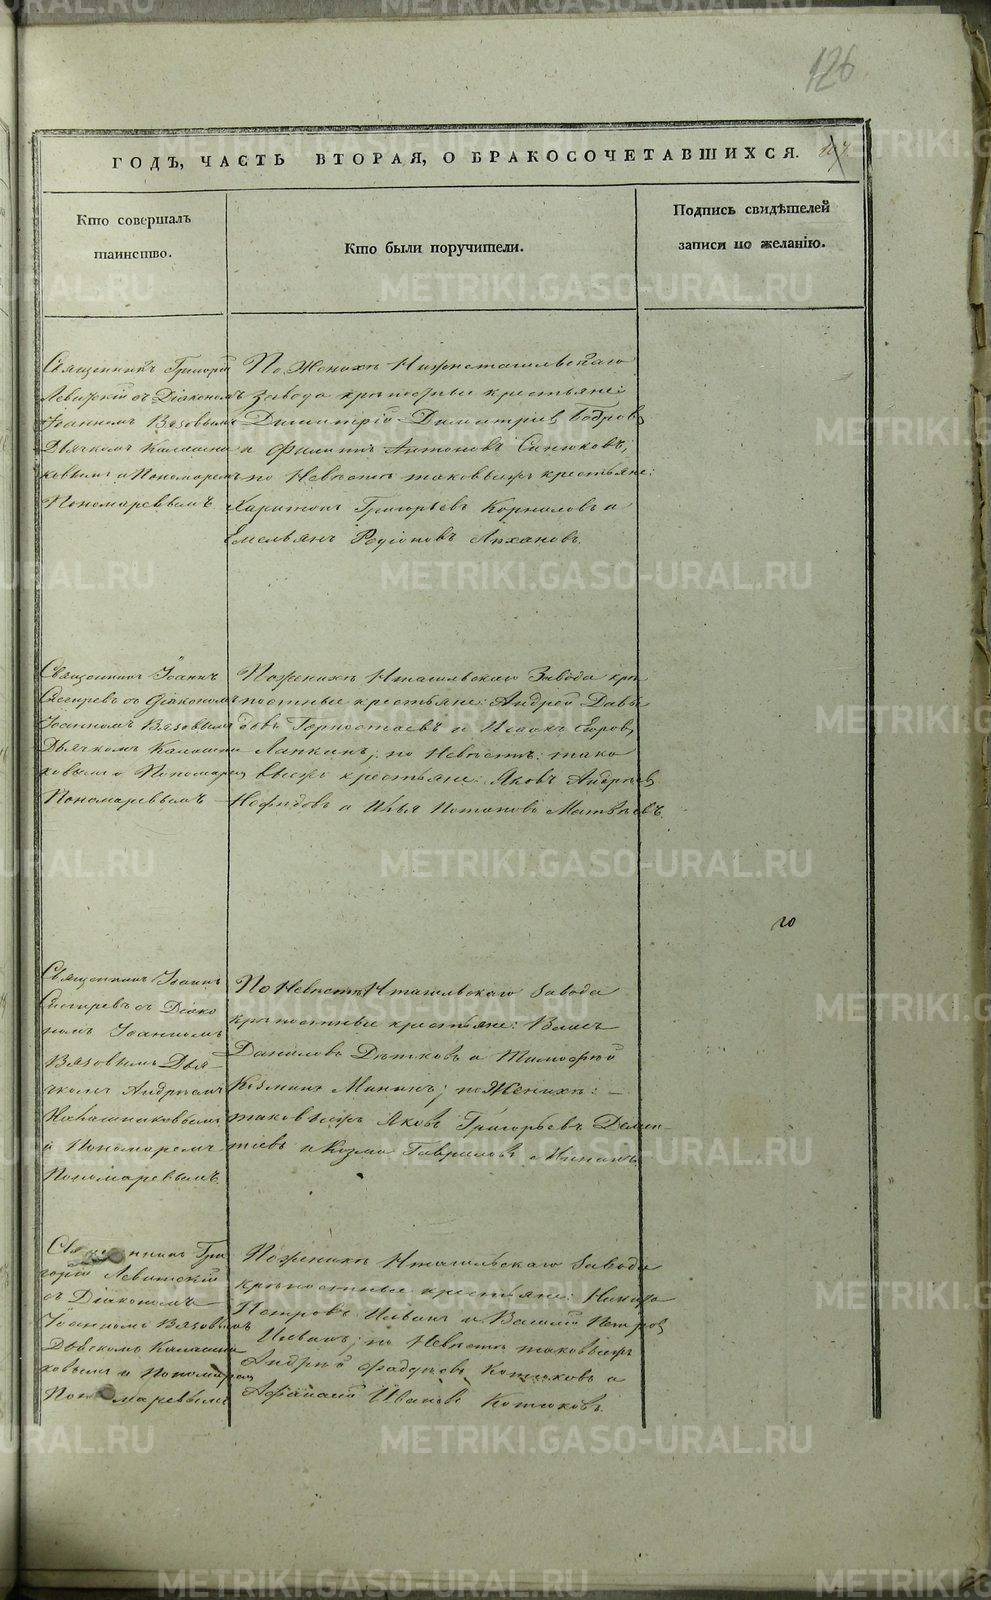 126
ГОДЪ, ЧАСТЬ ВТОРАЯ, О БРАКОСОЧЕТАВШИХСЯ.
Кто совершалъ
таинство.
Кто были поручители.
Подпись свидѣтелей
записи по желанію.
Священникъ Григорій
Левитскій съ Діакономъ
Іоанномъ Вязовымъ
Дьячкомъ Калашни
ковымъ и Пономаремъ
Пономаревымъ
По Женихѣ Нижнетагильскаго
Завода крѣпостные крестьяне:
Димитрій Димитріев Бобров
и Филиппъ Антоновъ Синюковъ;
по Невѣстѣ таковыежъ крестьяне:
Харитонъ Григорьевъ Корниловъ и
Емельянъ Родіоновъ
Священникъ Іоаннъ
Снегиревъ съ Діакономъ
Іоанномъ Вязовымъ
Дьячкомъ Калашни
ковымъ и Пономарем
Пономаревымъ
По женихѣ Нтагильскаго Завода крѣ
постные крестьяне: Андрей Давы
довъ Горностаевъ и Исаакъ Егоров
Лапкинъ; по Невѣстѣ: тако
выежъ крестьяне: Яковъ Андреев
Нефидовъ и Илья Потаповъ Матвѣевъ.
го
Священникъ Іоаннъ
Снегиревъ съ Діако
номъ Іоанномъ
Вязовымъ Дья
чкомъ Андреемъ
Калашниковымъ
и Пономаремъ
Пономаревымъ.
По Невѣстѣ Нтагильскаго завода
крѣпостные крестьяне:
Даниловъ Дѣтковъ и Тимофей
Козминъ Мининъ; по Женихѣ:
таковыежъ Яковъ Григорьевъ Демен-
тьевъ и Козма Гавриловъ Мининъ.
Священникъ Гри
горій Левитскій
съ Діакономъ
Іоанномъ Вязовымъ
Дьячкомъ Калашни
ковымъ и Пономарем
Пономаревымъ
По женихѣ Нтагильскаго Завода
крѣпостные крестьяне:
Петровъ и Василій Петров
; по Невѣстѣ таковыежъ
Андрей Фадѣевъ Котюковъ и
Афанасій Ивановъ Котюковъ.
METRIKI.GASO-URAL.RU